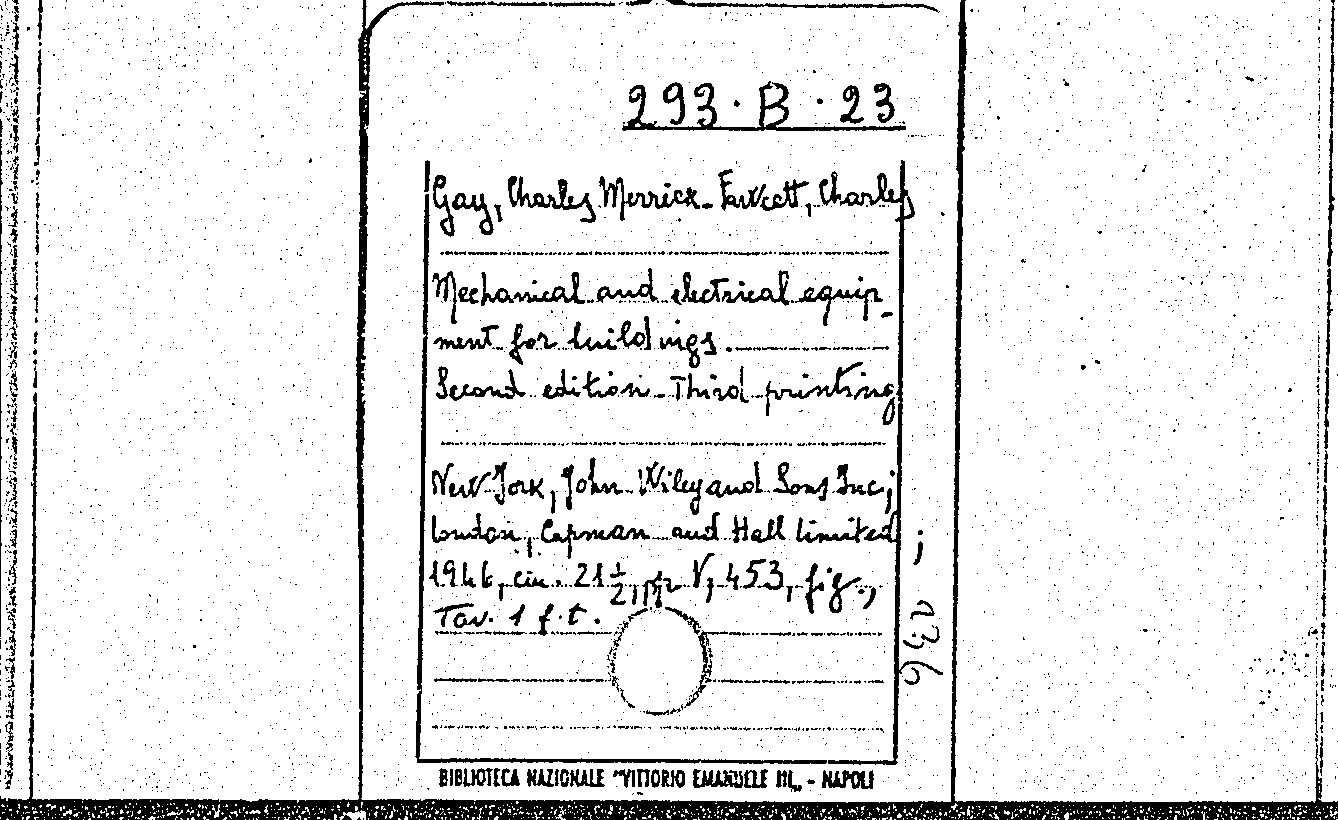 293 · B · 23
Gay, Charles Merrick - Fawcett, Charles
Mechanical and electrical equip-
ment for buildings.
Second edition - Third printing
New York, John Wiley and Sons Inc;
London, Capman and Hall limited;
1946, cm. 21 1/2, pp V, 453, fig.,
Tav. 1 f.t.
BIBLIOTECA NAZIONALE "VITTORIO EMANUELE III„ - NAPOLI